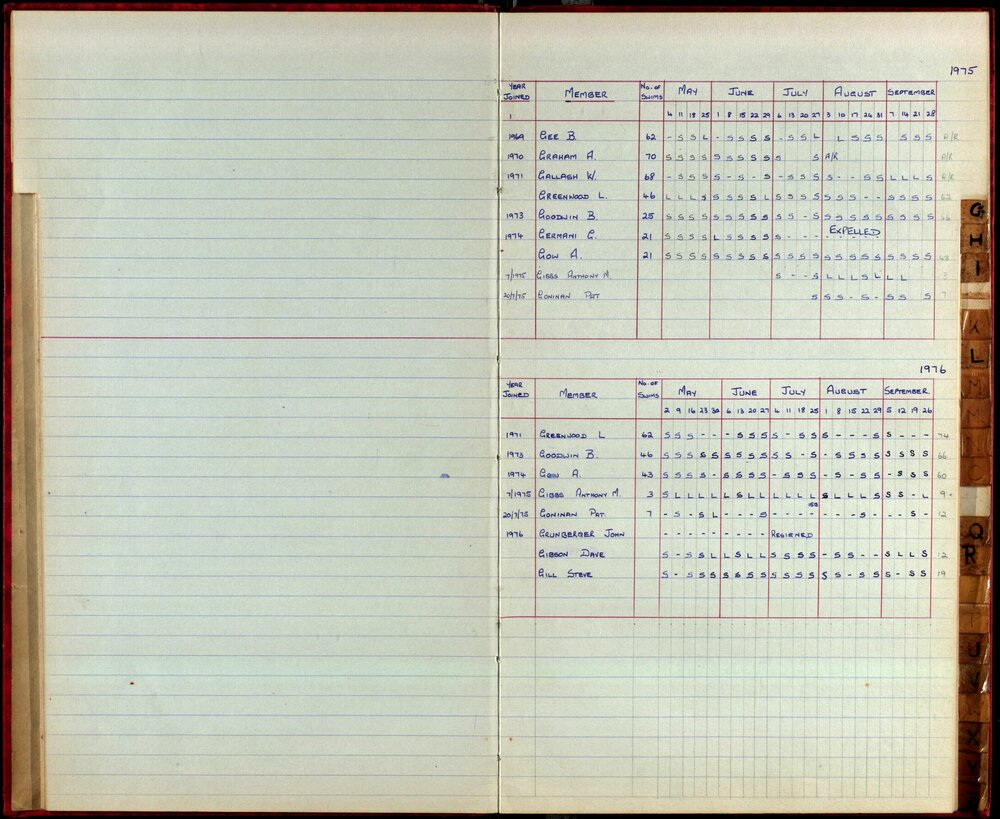 1975
YEAR JOINED MEMBER No. of SWIMS MAY JUNE JULY AUGUST SEPTEMBER
4 11 18 25 1 8 15 22 29 6 13 20 27 3 10 17 24 31 7 14 21 28
1969 GEE B. 62 - S S L - S S S S - S S L L S S S S S S A/R
1970 GRAHAM A. 70 S S S S S S S S S S S A/R A/R
1971 GALLASH W. 68 - S S S S - S - S - S S S S - - S S L L L S A/R
GREENWOOD L. 46 L L L S S S S S L S S S S S S S - - S S S S 62
GOODWIN B. 25 S S S S S S S S S S S - S S S S S S S S S S 46
1973
1974 GERMANI G. 21 S S S S L S S S S S - - - EXPELLED
GOW A. 21 S S S S S S S S S S S S S S S S S S S S S S 43
7/1975 GIBBS ANTHONY M. S - - S L L L S L L L 3
20/7/75 GONINAN PAT S S S - S - S S S 7
1976
YEAR JOINED MEMBER No. OF SWIMS MAY JUNE JULY AUGUST SEPTEMBER.
2 9 16 23 30 6 13 20 27 4 11 18 25 1 8 15 22 29 5 12 19 26
1971 GREENWOOD L 62 S S S - - - S S S S - S S S - - - S S - - - 74
1973 GOODWIN B. 46 S S S S S S S S S S S - S - S S S S S S S S 66
1974 GOW A. 43 S S S S - S S S S - S S S - S - S S - S S S 60
7/1975 GIBBS ANTHONY M. 3 S L L L L L S L L L L L L S L L L S S S - L 9
20/7/75 GONINAN PAT. 7 - S - S L - - - S - - - - - - - S - - - S - 12
1976 GRUNBERGER JOHN - - - - - - - - - RESIGNED
GIBSON DAVE S - S S L L S L L S S S S - S S - - S L L S 12
GILL STEVE S - S S S S S S S S S S S S S - S S S - S S 19
G
H
I
K
L
M
N
O
Q
R
T
U
V
W
X
Y